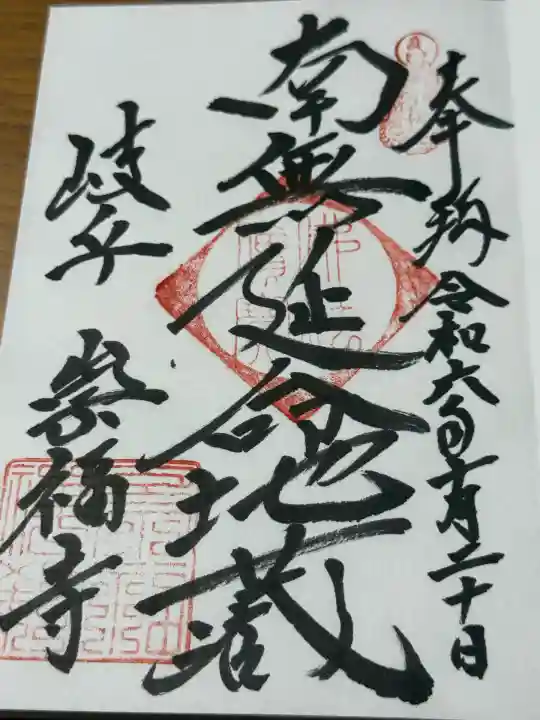 奉拝 令和六年十月二十日
南無延命地蔵
岐阜 崇福寺